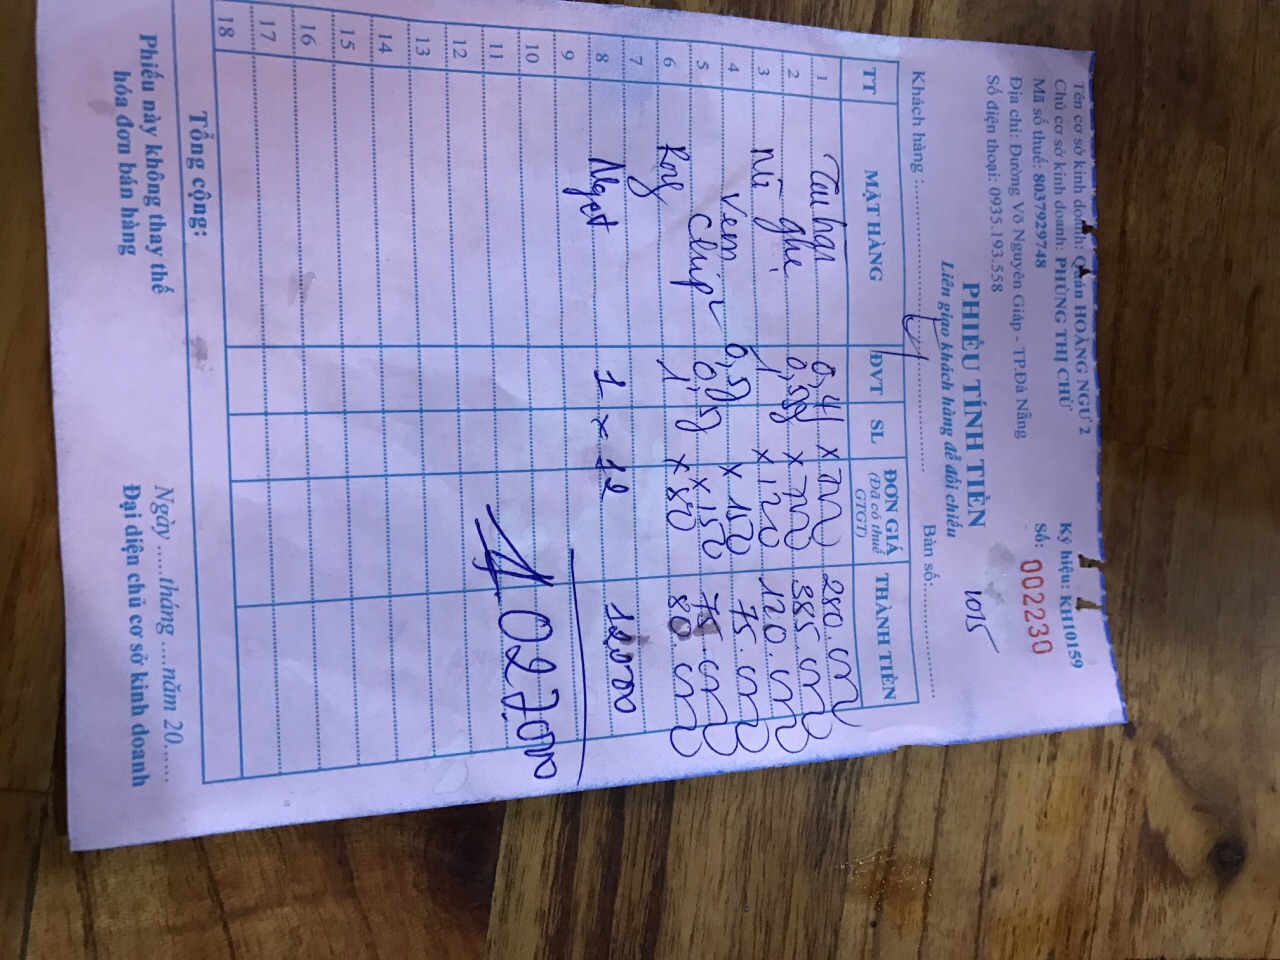 Tên cơ sở kinh doanh: Quán HOÀNG NGƯ 2
Chủ cơ sở kinh doanh: PHÙNG THỊ CHỮ
Mã số thuế: 8037929748
Địa chỉ: Đường Võ Nguyên Giáp - TP.Đà Nẵng
Số điện thoại: 0935.193.558
Ký hiệu: KH10159
Số: 002230
PHIẾU TÍNH TIỀN
Liên giao khách hàng để đối chiếu
Khách hàng : Bàn số:
TT MẶT HÀNG ĐVT SL ĐƠN GIÁ (Đã có thuế GTGT) THÀNH TIỀN
1 0,4 x 280.
2 ghẹ x 385.
3 1 x 120 120.
4 Vẹm 0,5 x 150 75.
5 chíp 0,5 x 150 75.
6 Rong 1 x 80 80.
7
8 Ngọt 1 x 12 12000
9
10
11 1027000
12
13
14
15
16
17
18
Tổng cộng:
Phiếu này không thay thế
hóa đơn bán hàng
Ngày ..... tháng .... năm 20......
Đại diện chủ cơ sở kinh doanh